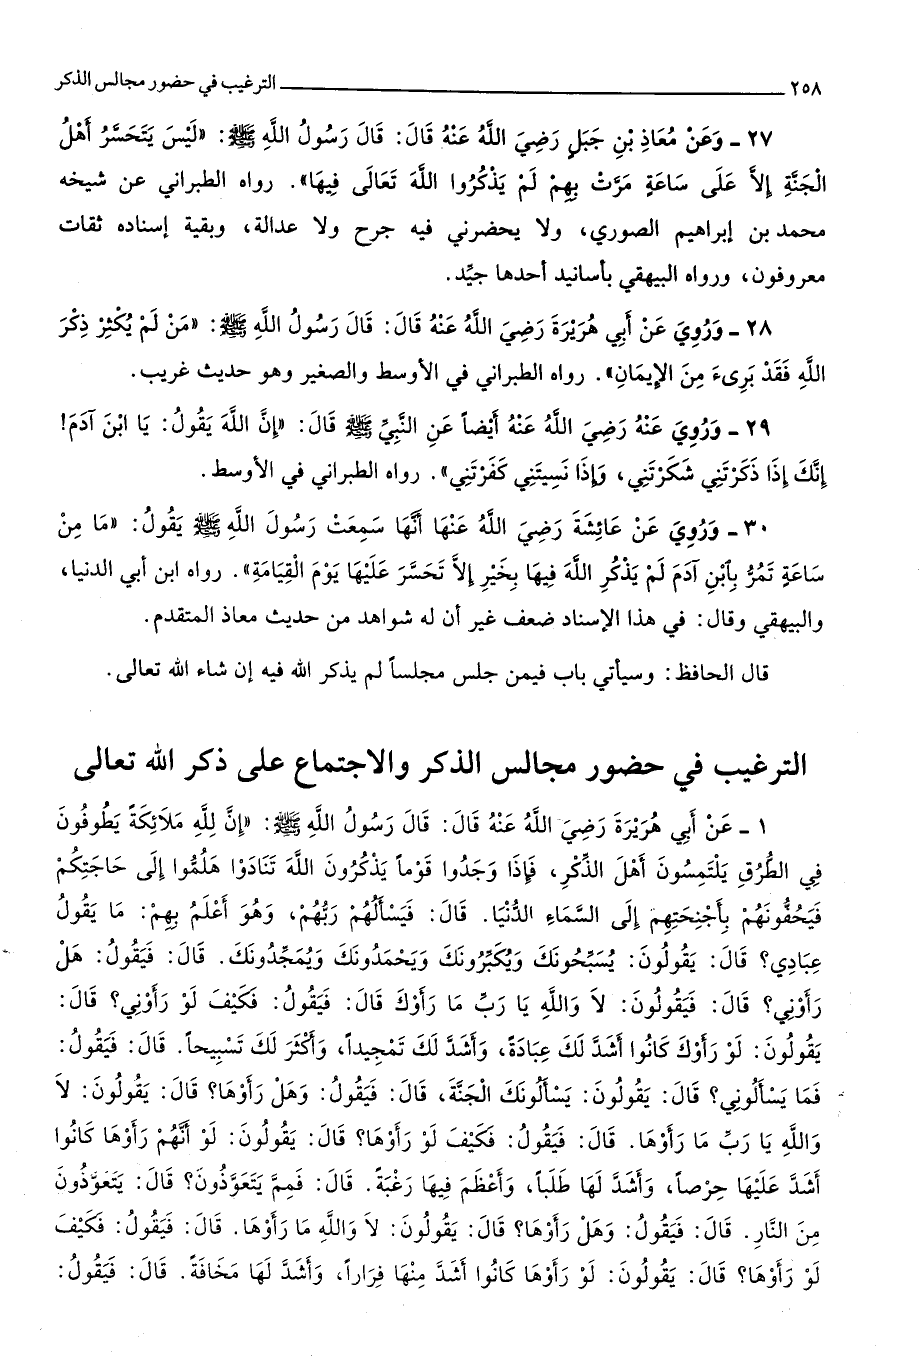 ٢٥٨ ــــــــــــــــــــــــــــــــــــ الترغيب في حضور مجالس الذكر
٢٧ ـ وَعَنْ مُعَاذِ بْنِ جَبَلٍ رَضِيَ اللَّهُ عَنْهُ قَالَ: قَالَ رَسُولُ اللَّهِ ﷺ: «لَيْسَ يَتَحَسَّرُ أَهْلُ
الْجَنَّةِ إِلاَّ عَلَى سَاعَةٍ مَرَّتْ بِهِمْ لَمْ يَذْكُرُوا اللَّهَ تَعَالَى فِيهَا». رواه الطبراني عن شيخه
محمد بن إبراهيم الصوري، ولا يحضرني فيه جرح ولا عدالة، وبقية إسناده ثقات
معروفون، ورواه البيهقي بأسانيد أحدها جيِّد.
٢٨ ـ وَرُوِيَ عَنْ أَبِي هُرَيْرَةَ رَضِيَ اللَّهُ عَنْهُ قَالَ: قَالَ رَسُولُ اللَّهِ ﷺ: «مَنْ لَمْ يُكْثِرْ ذِكْرَ
اللَّهِ فَقَدْ بَرِىءَ مِنَ الإِيمَانِ». رواه الطبراني في الأوسط والصغير وهو حديث غريب.
٢٩ ـ وَرُوِيَ عَنْهُ رَضِيَ اللَّهُ عَنْهُ أَيْضاً عَنِ النَّبِيِّ ﷺ قَالَ: «إِنَّ اللَّهَ يَقُولُ: يَا ابْنَ آدَمَ!
إِنَّكَ إِذَا ذَكَرْتَنِي شَكَرْتَنِي، وَإِذَا نَسِيتَنِي كَفَرْتَنِي». رواه الطبراني في الأوسط.
٣٠ ـ وَرُوِيَ عَنْ عَائِشَةَ رَضِيَ اللَّهُ عَنْهَا أَنَّهَا سَمِعَتْ رَسُولَ اللَّهِ ﷺ يَقُولُ: «مَا مِنْ
سَاعَةٍ تَمُرُّ بِٱبْنِ آدَمَ لَمْ يَذْكُرِ اللَّهَ فِيهَا بِخَيْرٍ إِلاَّ تَحَسَّرَ عَلَيْهَا يَوْمَ الْقِيَامَةِ». رواه ابن أبي الدنيا،
والبيهقي وقال: في هذا الإسناد ضعف غير أن له شواهد من حديث معاذ المتقدم.
قال الحافظ: وسيأتي باب فيمن جلس مجلساً لم يذكر الله فيه إن شاء الله تعالى.
الترغيب في حضور مجالس الذكر والاجتماع على ذكر الله تعالى
١ ـ عَنْ أَبِي هُرَيْرَةَ رَضِيَ اللَّهُ عَنْهُ قَالَ: قَالَ رَسُولُ اللَّهِ ﷺ: «إِنَّ لِلَّهِ مَلَائِكَةً يَطُوفُونَ
فِي الطُّرُقِ يَلْتَمِسُونَ أَهْلَ الذِّكْرِ، فَإِذَا وَجَدُوا قَوْماً يَذْكُرُونَ اللَّهَ تَنَادَوْا هَلُمُّوا إِلَى حَاجَتِكُمْ
فَيَحُفُّونَهُمْ بِأَجْنِحَتِهِمْ إِلَى السَّمَاءِ الدُّنْيَا. قَالَ: فَيَسْأَلُهُمْ رَبُّهُمْ، وَهُوَ أَعْلَمُ بِهِمْ: مَا يَقُولُ
عِبَادِي؟ قَالَ: يَقُولُونَ: يُسَبِّحُونَكَ وَيُكَبِّرُونَكَ وَيَحْمَدُونَكَ وَيُمَجِّدُونَكَ. قَالَ: فَيَقُولُ: هَلْ
رَأَوْنِي؟ قَالَ: فَيَقُولُونَ: لاَ وَاللَّهِ يَا رَبِّ مَا رَأَوْكَ قَالَ: فَيَقُولُ: فَكَيْفَ لَوْ رَأَوْنِي؟ قَالَ:
يَقُولُونَ: لَوْ رَأَوْكَ كَانُوا أَشَدَّ لَكَ عِبَادَةً، وَأَشَدَّ لَكَ تَمْجِيداً، وَأَكْثَرَ لَكَ تَسْبِيحاً. قَالَ: فَيَقُولُ:
فَمَا يَسْأَلُونِي؟ قَالَ: يَقُولُونَ: يَسْأَلُونَكَ الْجَنَّةَ، قَالَ: فَيَقُولُ: وَهَلْ رَأَوْهَا؟ قَالَ: يَقُولُونَ: لاَ
وَاللَّهِ يَا رَبِّ مَا رَأَوْهَا. قَالَ: فَيَقُولُ: فَكَيْفَ لَوْ رَأَوْهَا؟ قَالَ: يَقُولُونَ: لَوْ أَنَّهُمْ رَأَوْهَا كَانُوا
أَشَدَّ عَلَيْهَا حِرْصاً، وَأَشَدَّ لَهَا طَلَباً، وَأَعْظَمَ فِيهَا رَغْبَةً. قَالَ: فَمِمَّ يَتَعَوَّذُونَ؟ قَالَ: يَتَعَوَّذُونَ
مِنَ النَّارِ. قَالَ: فَيَقُولُ: وَهَلْ رَأَوْهَا؟ قَالَ: يَقُولُونَ: لاَ وَاللَّهِ مَا رَأَوْهَا. قَالَ: فَيَقُولُ: فَكَيْفَ
لَوْ رَأَوْهَا؟ قَالَ: يَقُولُونَ: لَوْ رَأَوْهَا كَانُوا أَشَدَّ مِنْهَا فِرَاراً، وَأَشَدَّ لَهَا مَخَافَةً. قَالَ: فَيَقُولُ: